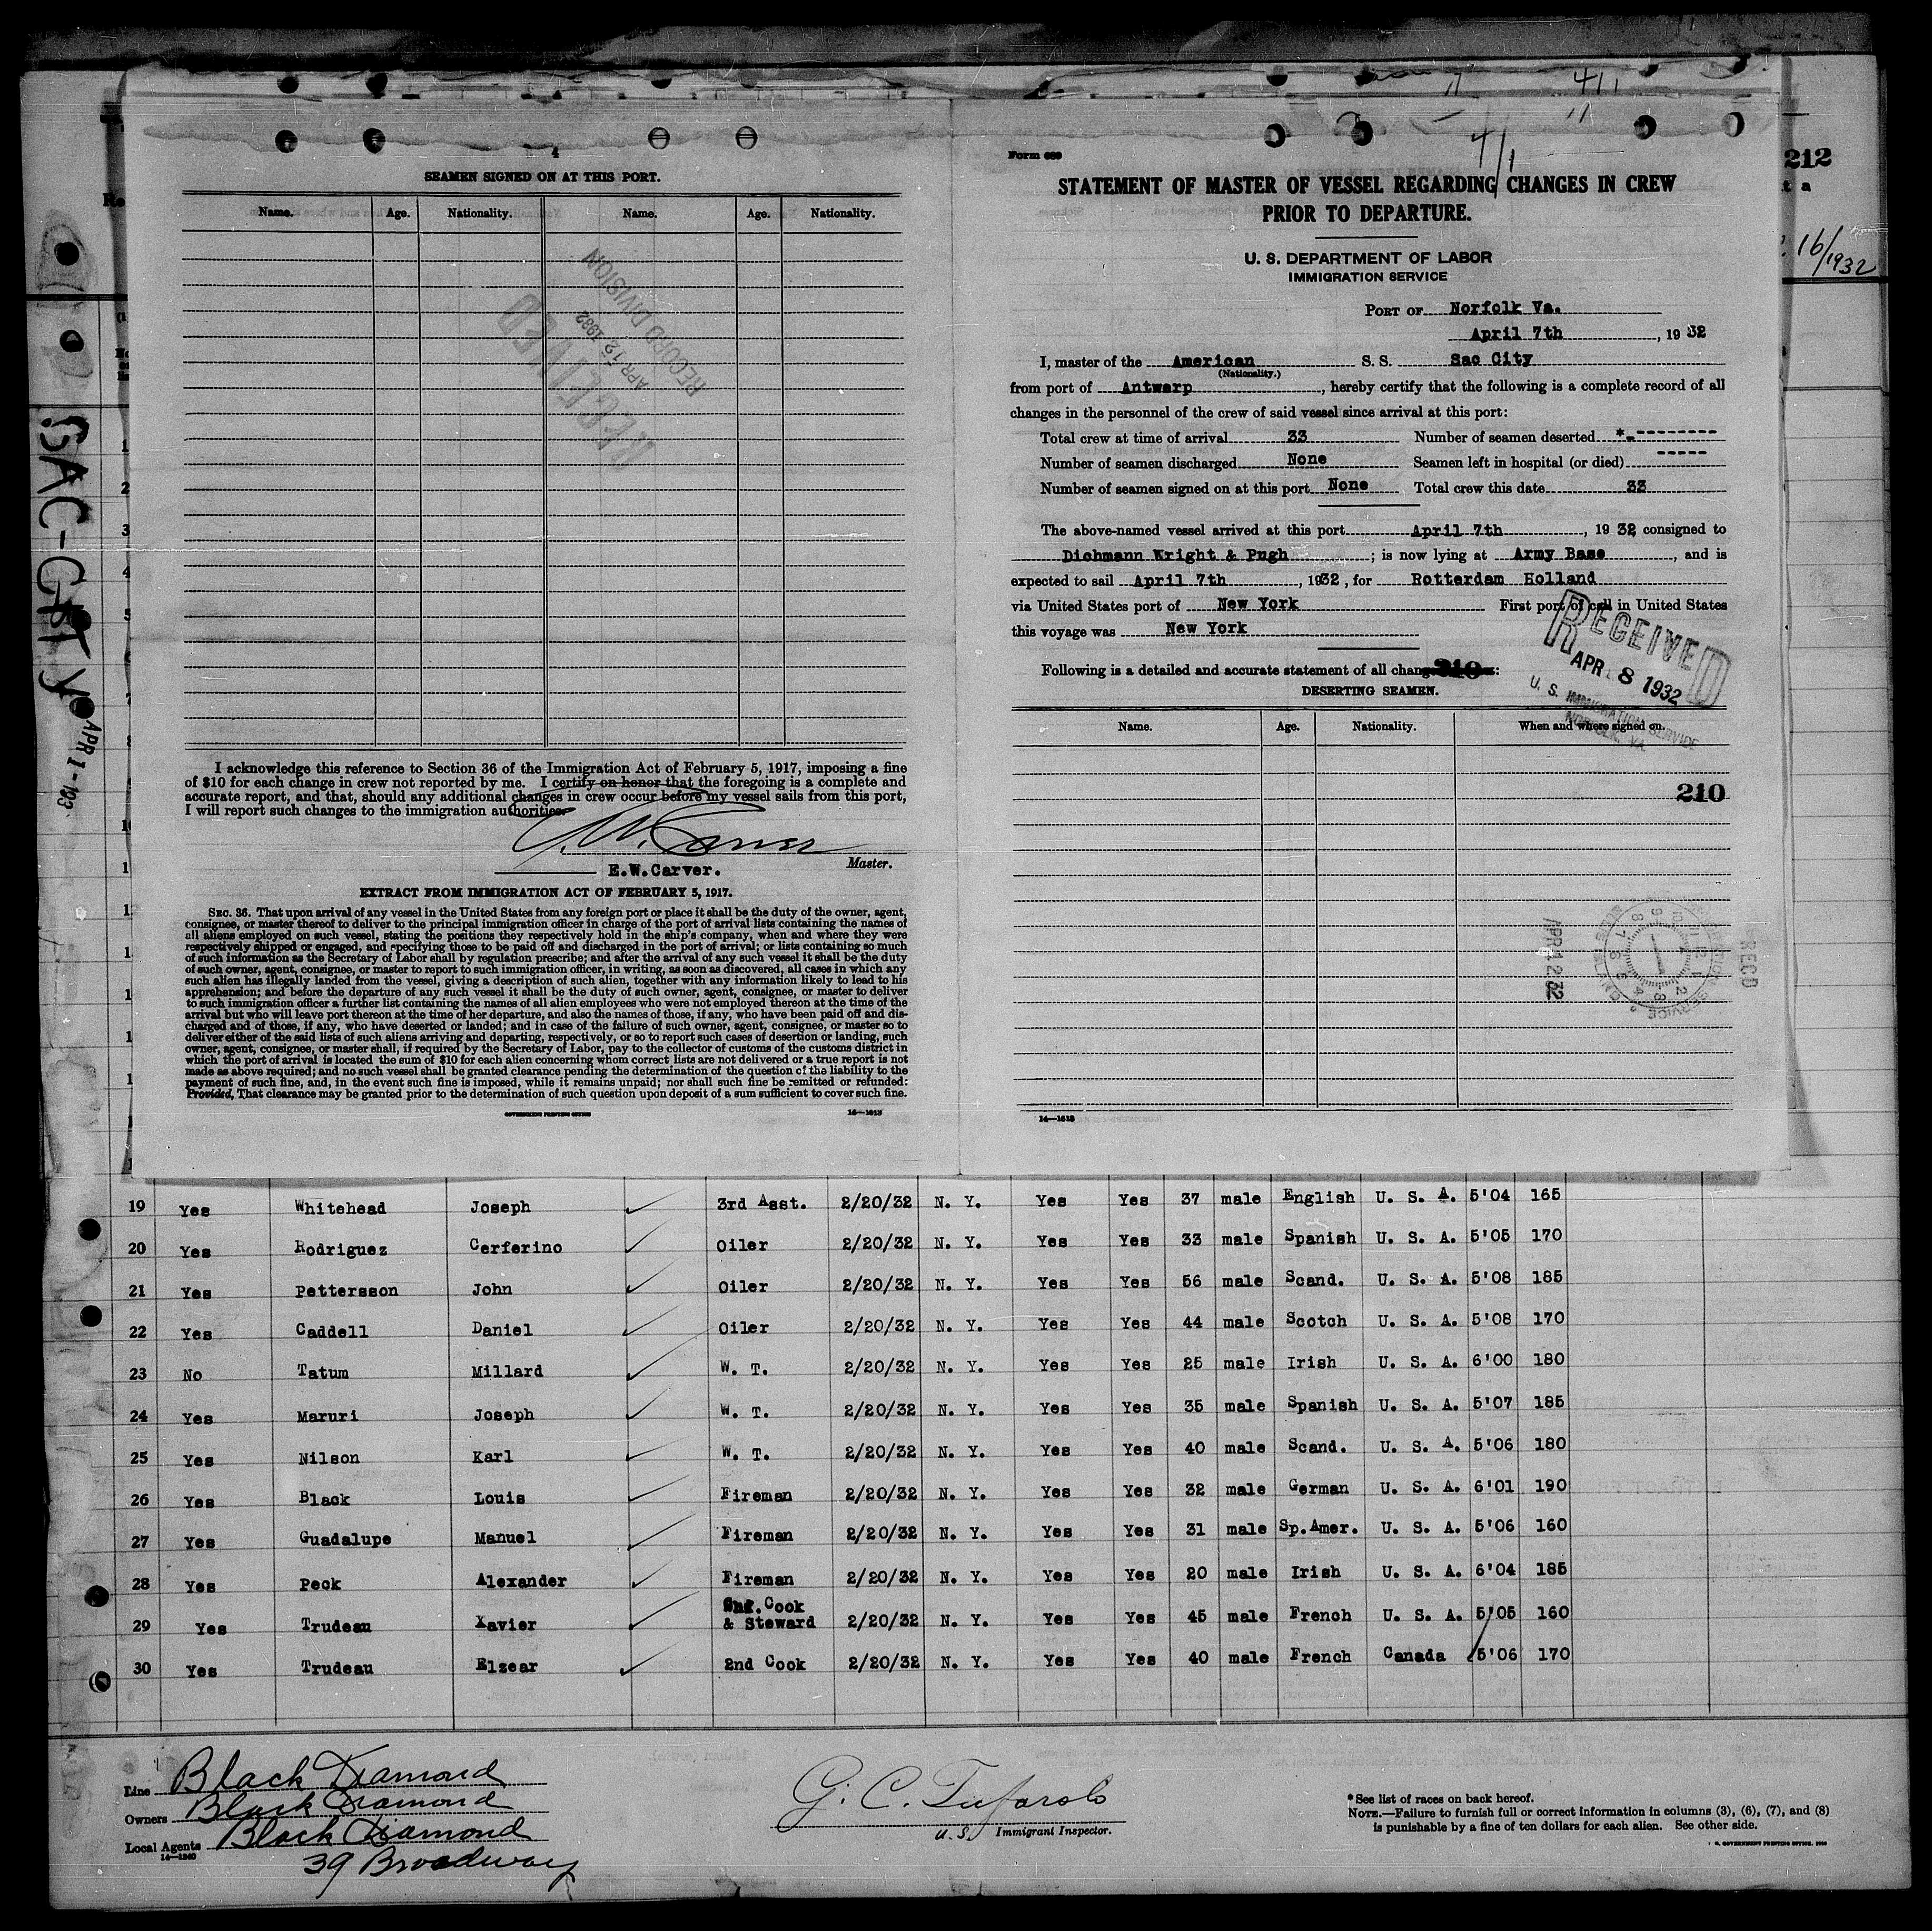 212
16/1932
SAC-CITY
APR 1-193
4
SEAMEN SIGNED ON AT THIS PORT.
Name. Age. Nationality. Name. Age. Nationality.
RECEIVED
APR 12 1932
RECORD DIVISION
I acknowledge this reference to Section 36 of the Immigration Act of February 5, 1917, imposing a fine
of $10 for each change in crew not reported by me. I certify on honor that the foregoing is a complete and
accurate report, and that, should any additional changes in crew occur before my vessel sails from this port,
I will report such changes to the immigration authorities.
E.W. Carver
Master.
E.W.Carver.
EXTRACT FROM IMMIGRATION ACT OF FEBRUARY 5, 1917.
SEC. 36. That upon arrival of any vessel in the United States from any foreign port or place it shall be the duty of the owner, agent,
consignee, or master thereof to deliver to the principal immigration officer in charge of the port of arrival lists containing the names of
all aliens employed on such vessel, stating the positions they respectively hold in the ship's company, when and where they were
respectively shipped or engaged, and specifying those to be paid off and discharged in the port of arrival; or lists containing so much
of such information as the Secretary of Labor shall by regulation prescribe; and after the arrival of any such vessel it shall be the duty
of such owner, agent, consignee, or master to report to such immigration officer, in writing, as soon as discovered, all cases in which any
such alien has illegally landed from the vessel, giving a description of such alien, together with any information likely to lead to his
apprehension; and before the departure of any such vessel it shall be the duty of such owner, agent, consignee, or master to deliver
to such immigration officer a further list containing the names of all alien employees who were not employed thereon at the time of the
arrival but who will leave port thereon at the time of her departure, and also the names of those, if any, who have been paid off and dis-
charged and of those, if any, who have deserted or landed; and in case of the failure of such owner, agent, consignee, or master so to
deliver either of the said lists of such aliens arriving and departing, respectively, or so to report such cases of desertion or landing, such
owner, agent, consignee, or master shall, if required by the Secretary of Labor, pay to the collector of customs of the customs district in
which the port of arrival is located the sum of $10 for each alien concerning whom correct lists are not delivered or a true report is not
made as above required; and no such vessel shall be granted clearance pending the determination of the question of the liability to the
payment of such fine, and, in the event such fine is imposed, while it remains unpaid; nor shall such fine be remitted or refunded:
Provided, That clearance may be granted prior to the determination of such question upon deposit of a sum sufficient to cover such fine.
GOVERNMENT PRINTING OFFICE 14—1613
4/1
Form 689
STATEMENT OF MASTER OF VESSEL REGARDING CHANGES IN CREW
PRIOR TO DEPARTURE.
U. S. DEPARTMENT OF LABOR
IMMIGRATION SERVICE
PORT OF Norfolk Va.
April 7th, 1932
I, master of the American S. S. Sac City
(Nationality.)
from port of Antwerp, hereby certify that the following is a complete record of all
changes in the personnel of the crew of said vessel since arrival at this port:
Total crew at time of arrival 33 Number of seamen deserted *---------
Number of seamen discharged None Seamen left in hospital (or died) -----
Number of seamen signed on at this port None Total crew this date 33
The above-named vessel arrived at this port April 7th, 1932 consigned to
Dichmann Wright & Pugh; is now lying at Army Base, and is
expected to sail April 7th, 1932, for Rotterdam Holland
via United States port of New York First port of call in United States
this voyage was New York
RECEIVED
APR 8 1932
U. S. IMMIGRATION SERVICE
NORFOLK, VA.
Following is a detailed and accurate statement of all chang 210:
DESERTING SEAMEN.
Name. Age. Nationality. When and where signed on.
210
REC'D
APR 12 32
14—1613
19 Yes Whitehead Joseph 3rd Asst. 2/20/32 N. Y. Yes Yes 37 male English U. S. A. 5'04 165
20 Yes Rodriguez Cerferino Oiler 2/20/32 N. Y. Yes Yes 33 male Spanish U. S. A. 5'05 170
21 Yes Pettersson John Oiler 2/20/32 N. Y. Yes Yes 56 male Scand. U. S. A. 5'08 185
22 Yes Caddell Daniel Oiler 2/20/32 N. Y. Yes Yes 44 male Scotch U. S. A. 5'08 170
23 No Tatum Millard W. T. 2/20/32 N. Y. Yes Yes 25 male Irish U. S. A. 6'00 180
24 Yes Maruri Joseph W. T. 2/20/32 N. Y. Yes Yes 35 male Spanish U. S. A. 5'07 185
25 Yes Nilson Karl W. T. 2/20/32 N. Y. Yes Yes 40 male Scand. U. S. A. 5'06 180
26 Yes Black Louis Fireman 2/20/32 N. Y. Yes Yes 32 male German U. S. A. 6'01 190
27 Yes Guadalupe Manuel Fireman 2/20/32 N. Y. Yes Yes 31 male Sp.Amer. U. S. A. 5'06 160
28 Yes Peck Alexander Fireman 2/20/32 N. Y. Yes Yes 20 male Irish U. S. A. 6'04 185
29 Yes Trudeau Xavier Cook & Steward 2/20/32 N. Y. Yes Yes 45 male French U. S. A. 5'05 160
30 Yes Trudeau Elzear 2nd Cook 2/20/32 N. Y. Yes Yes 40 male French Canada 5'06 170
Line Black Diamond
Owners Black Diamond
Local Agents Black Diamond
14—1240
39 Broadway
G. C. Tufarolo
U. S. Immigrant Inspector.
*See list of races on back hereof.
NOTE.—Failure to furnish full or correct information in columns (3), (6), (7), and (8)
is punishable by a fine of ten dollars for each alien. See other side.
GOVERNMENT PRINTING OFFICE